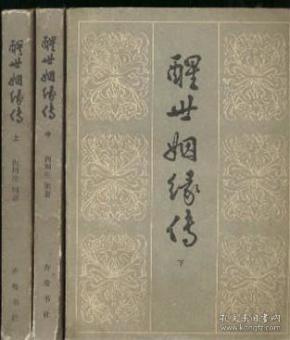 醒世姻缘传
上
西周生 辑著
齐鲁书社
醒世姻缘传
中
西周生 辑著
齐鲁书社
醒世姻缘传
下
孔夫子旧书网